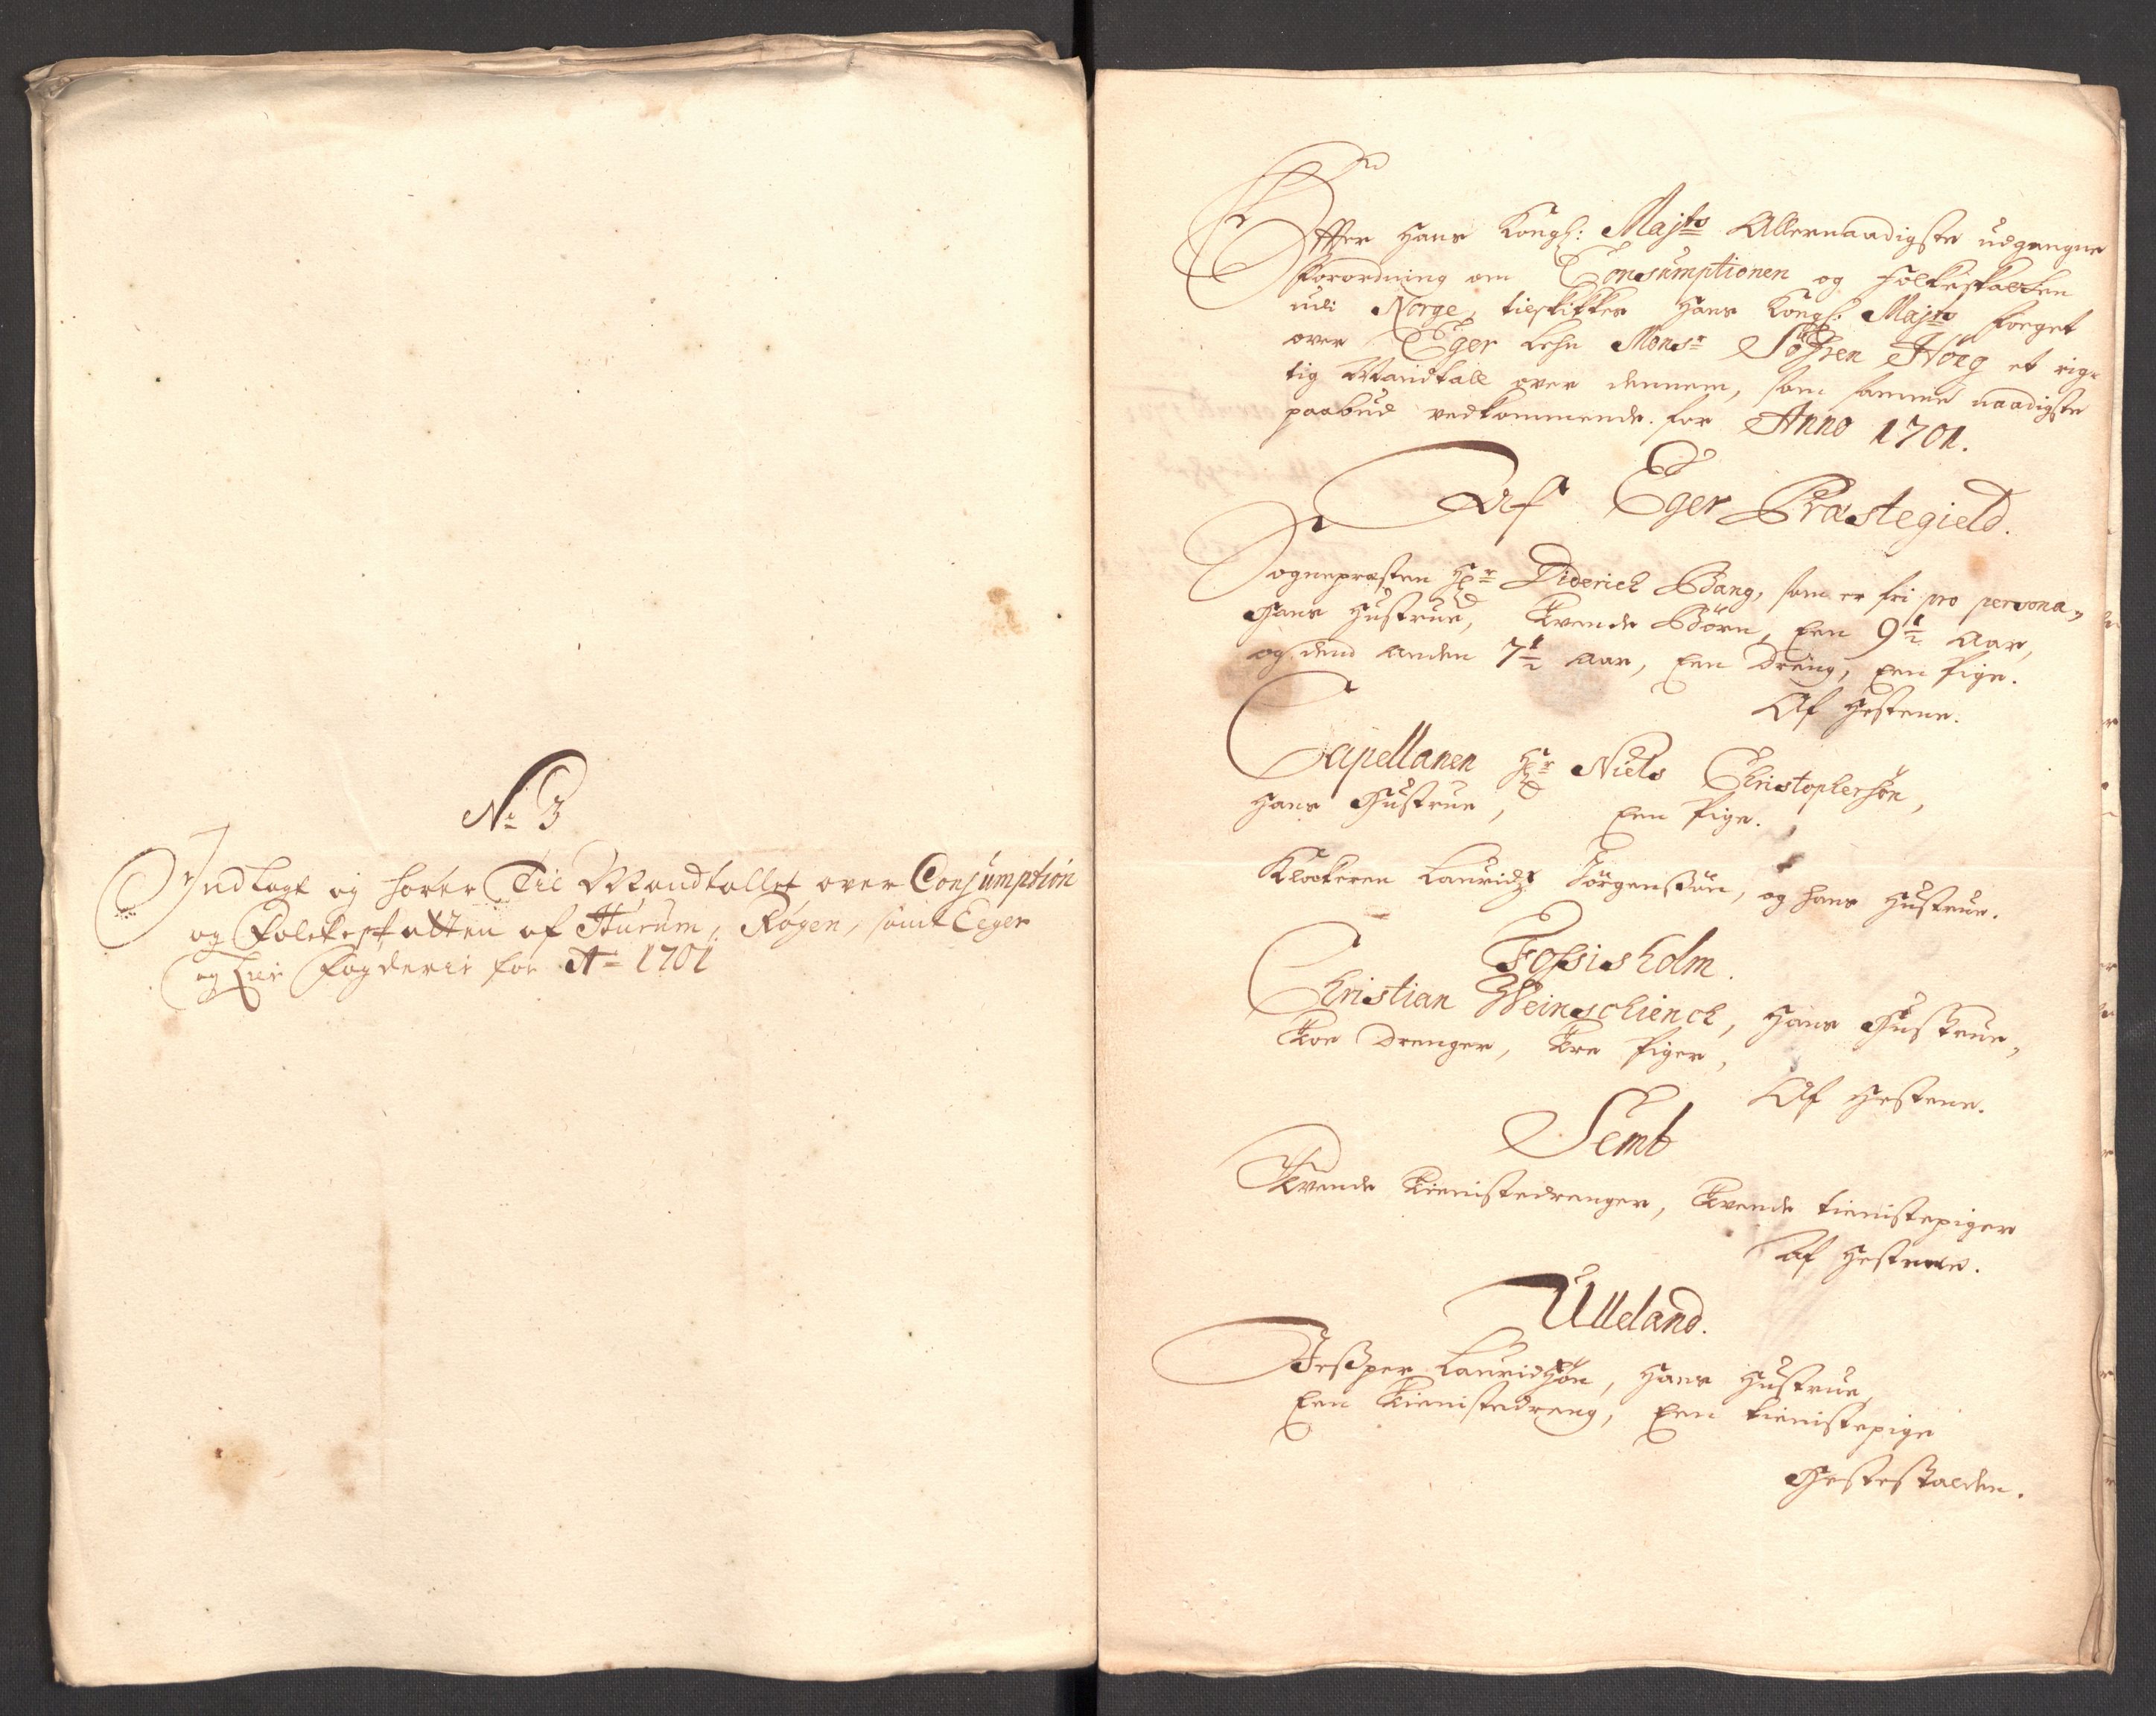 No 3
Indlagt og hører Til Mandtallet over Consumption
og Folcheskatten af Hurum, Røgen, samt Eeger
og Lier Fogderie for Ao 1701
Effter Hans Kongl: Majts Allernaadigste udgangne
Forordning om Consumptionen og Folkeskatten
udi Norge, tilskikkes Hans Kongl: Majts Foeget
over Eger Lehn Monsr Söfren Höeg et rig-
tig Mandtall over dennem, som samme naadigste
paabud vedkommende for Anno 1701.
Af Eger Præstegield.
Sognepræsten Hr Diderich Bang, som er fri pro persona,
Hans Hustrue, Tvende Börn, Een 9½ Aar,
og dend anden 7½ Aar, Een Dreng, Een Pige.
Af Hestene.
Capellanen Hr Niels Christophersön,
Hans Hustrue, Een Pige.
Klockeren Lauridz Jörgensön, og hans Hustrue.
Fossisholm.
Christian Weinschienck, Hans Hustrue,
Toe Drenger, Tre Piger,
Af Hestene.
Semb
Tvende Tienistedrenger, Tvende tienistepiger
Af Hestene.
Ulleland.
Jesper Lauridsön, Hans Hustrue,
Een Tienistedreng, Een tienistepige
Hesteskatten.